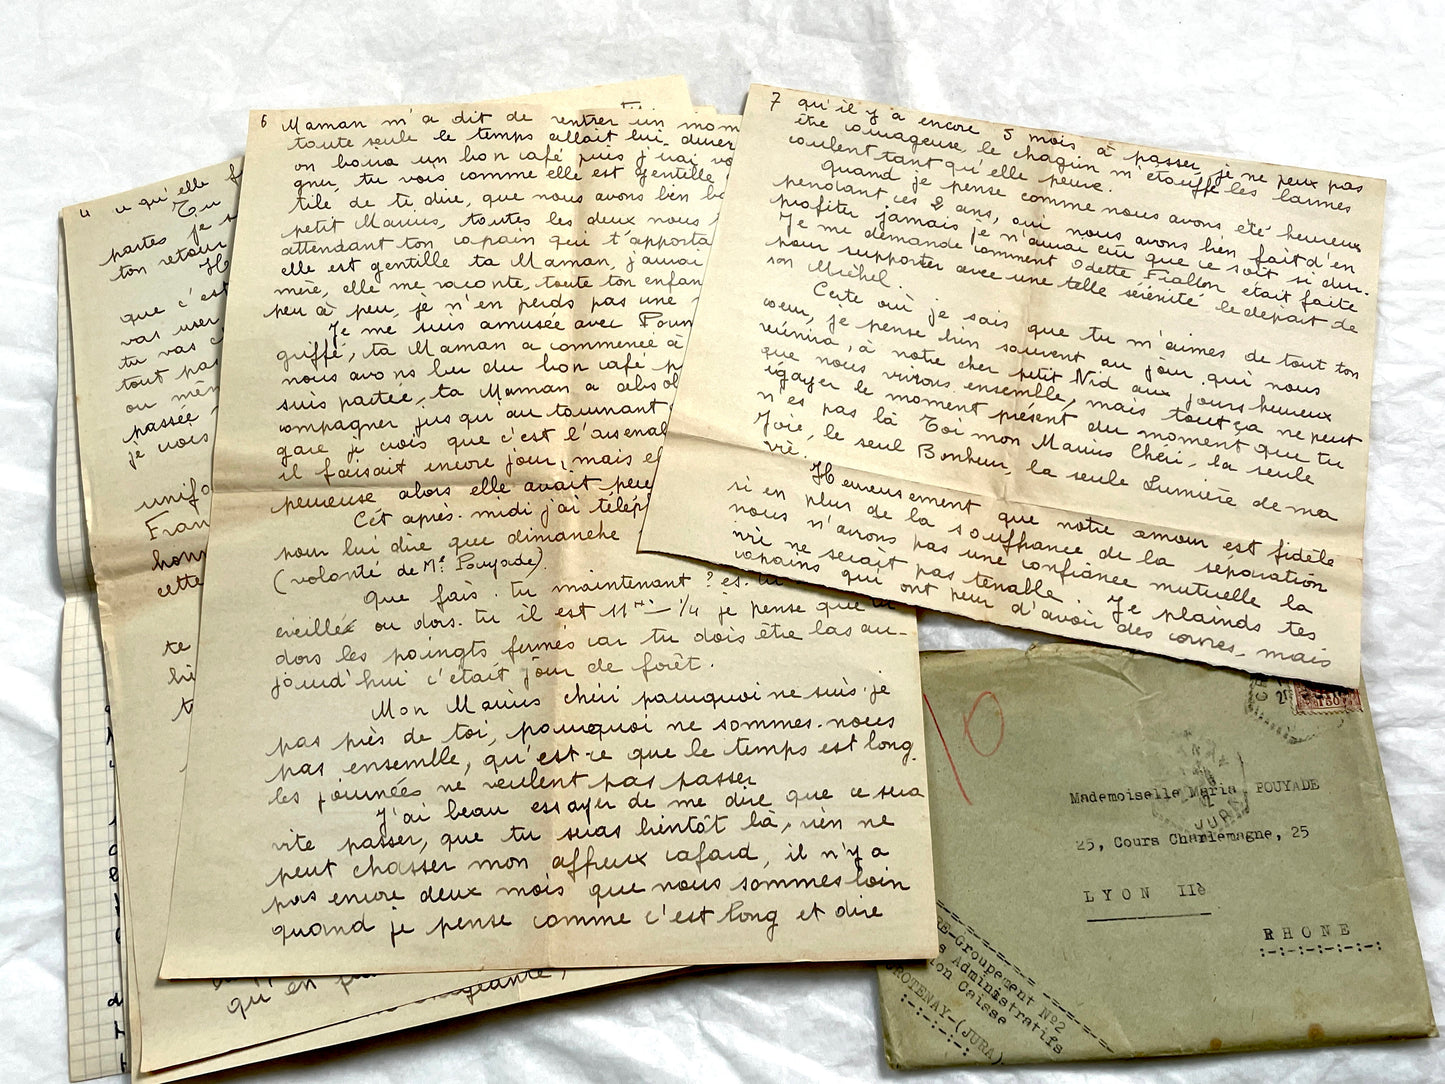 4 u qu'elle f
Tu
partes je s
ton retour
H
que c'est
vas user
tu vas c
tout pas
ou mêm
passée
je crois
unifo
Fran
hon
cette
te
hi
t
qu'en p
6 Maman m'a dit de rentrer un mom
toute seule le temps allait lui durer
on boua un bon café puis j'irai
gner, tu vois comme elle est gentille
tile de te dire, que nous avons bien b
petit Marius, toutes les deux nous
attendant ton copain qui t'apporta
elle est gentille ta Maman, j'aurai
mère, elle me raconte, toute ton enfan
peu à peu, je n'en perds pas une
Je me suis amusée avec Poum
griffé, ta Maman a commencé à
nous avons bu du bon café p
suis partée, ta Maman a absol
compagner jusqu'au tournant
gare je crois que c'est l'arsenal
il faisait encore jour, mais el
peureuse alors elle avait peu
Cet après-midi j'ai télép
pour lui dire que dimanche
(volonté de Me Pouyade).
Que fais-tu maintenant ? es-tu
éveillé ou dors-tu il est 11 1/4 je pense que tu
dors les poingts fermés car tu dois être las au-
jourd'hui c'était jour de forêt.
Mon Marius chéri pourquoi ne suis-je
pas près de toi, pourquoi ne sommes-nous
pas ensemble, qu'est-ce que le temps est long,
les journées ne veulent pas passer
J'ai beau essayer de me dire que ce sera
vite passer, que tu seras bientôt là, rien ne
peut chasser mon affreux cafard, il n'y a
pas encore deux mois que nous sommes loin
quand je pense comme c'est long et dire
7 qu'il y a encore 5 mois à passer, je ne peux pas
être courageuse le chagrin m'étouffe les larmes
coulent tant qu'elle peuve.
Quand je pense comme nous avons été heureux
pendant ces 2 ans, oui nous avons bien fait d'en
profiter jamais je n'aurai cru que ce soit si dur.
Je me demande comment Odette Fiallon était faite
pour supporter avec une telle sérénité le départ de
son Michel.
Certe oui je sais que tu m'aimes de tout ton
coeur, je pense bien souvent au jour qui nous
réunira, à notre cher petit Nid aux jours heureux
que nous vivrons ensemble, mais tout ça ne peut
égayer le moment présent du moment que tu
n'es pas là Toi mon Marius Chéri, la seule
Joie, le seul Bonheur, la seule Lumière de ma
vie.
Heureusement que notre amour est fidèle
si en plus de la souffrance de la séparation
nous n'avons pas une confiance mutuelle la
vie ne serait pas tenable. Je plains tes
copains qui ont peur d'avoir des cornes, mais
10
1F50
JURA
Mademoiselle Maria POUYADE
25, Cours Charlemagne, 25
LYON IIè
RHONE
RE-Groupement N°2
s Administratifs
ion Caisse
CROTENAY-(JURA)